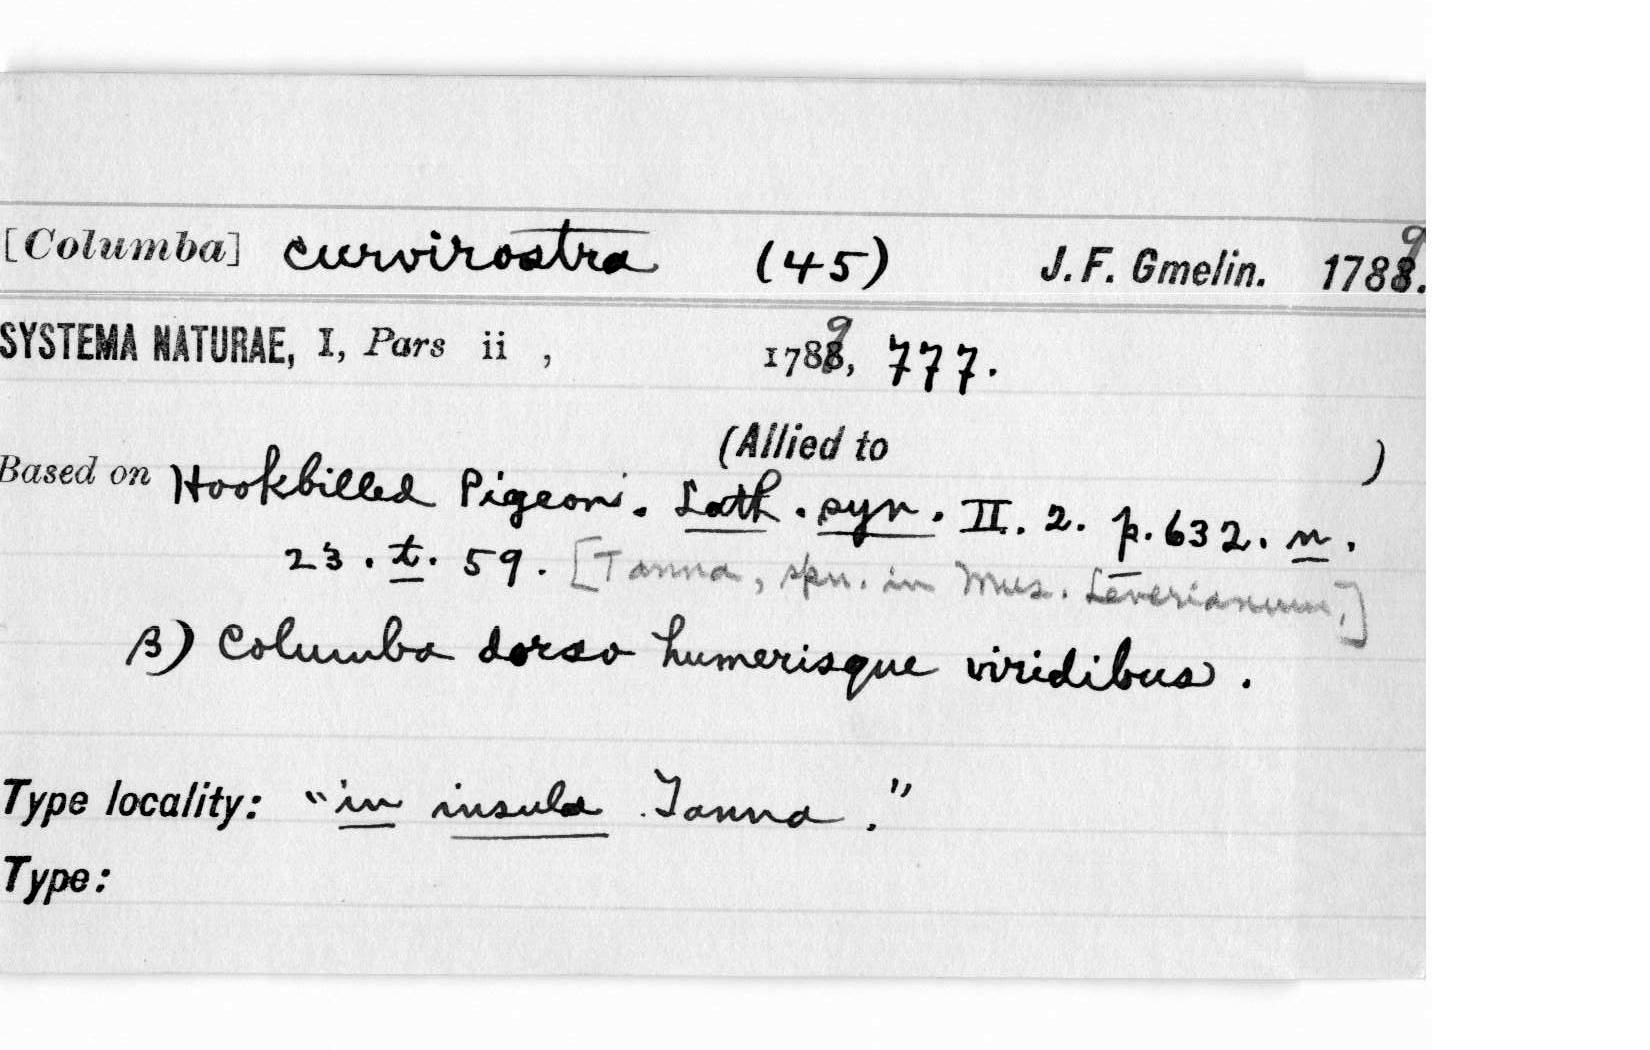 [Columba] curvirostra (45) J. F. Gmelin. 1789.
SYSTEMA NATURAE, I, Pars ii , 1789, 777.
(Allied to )
Based on Hookbilled Pigeon. Lath. syn. II. 2. p. 632. n.
23. t. 59. [Tanna, spn. in Mus. Leverianum.]
β) Columba dorso humerisque viridibus.
Type locality: "in insula Tanna."
Type: